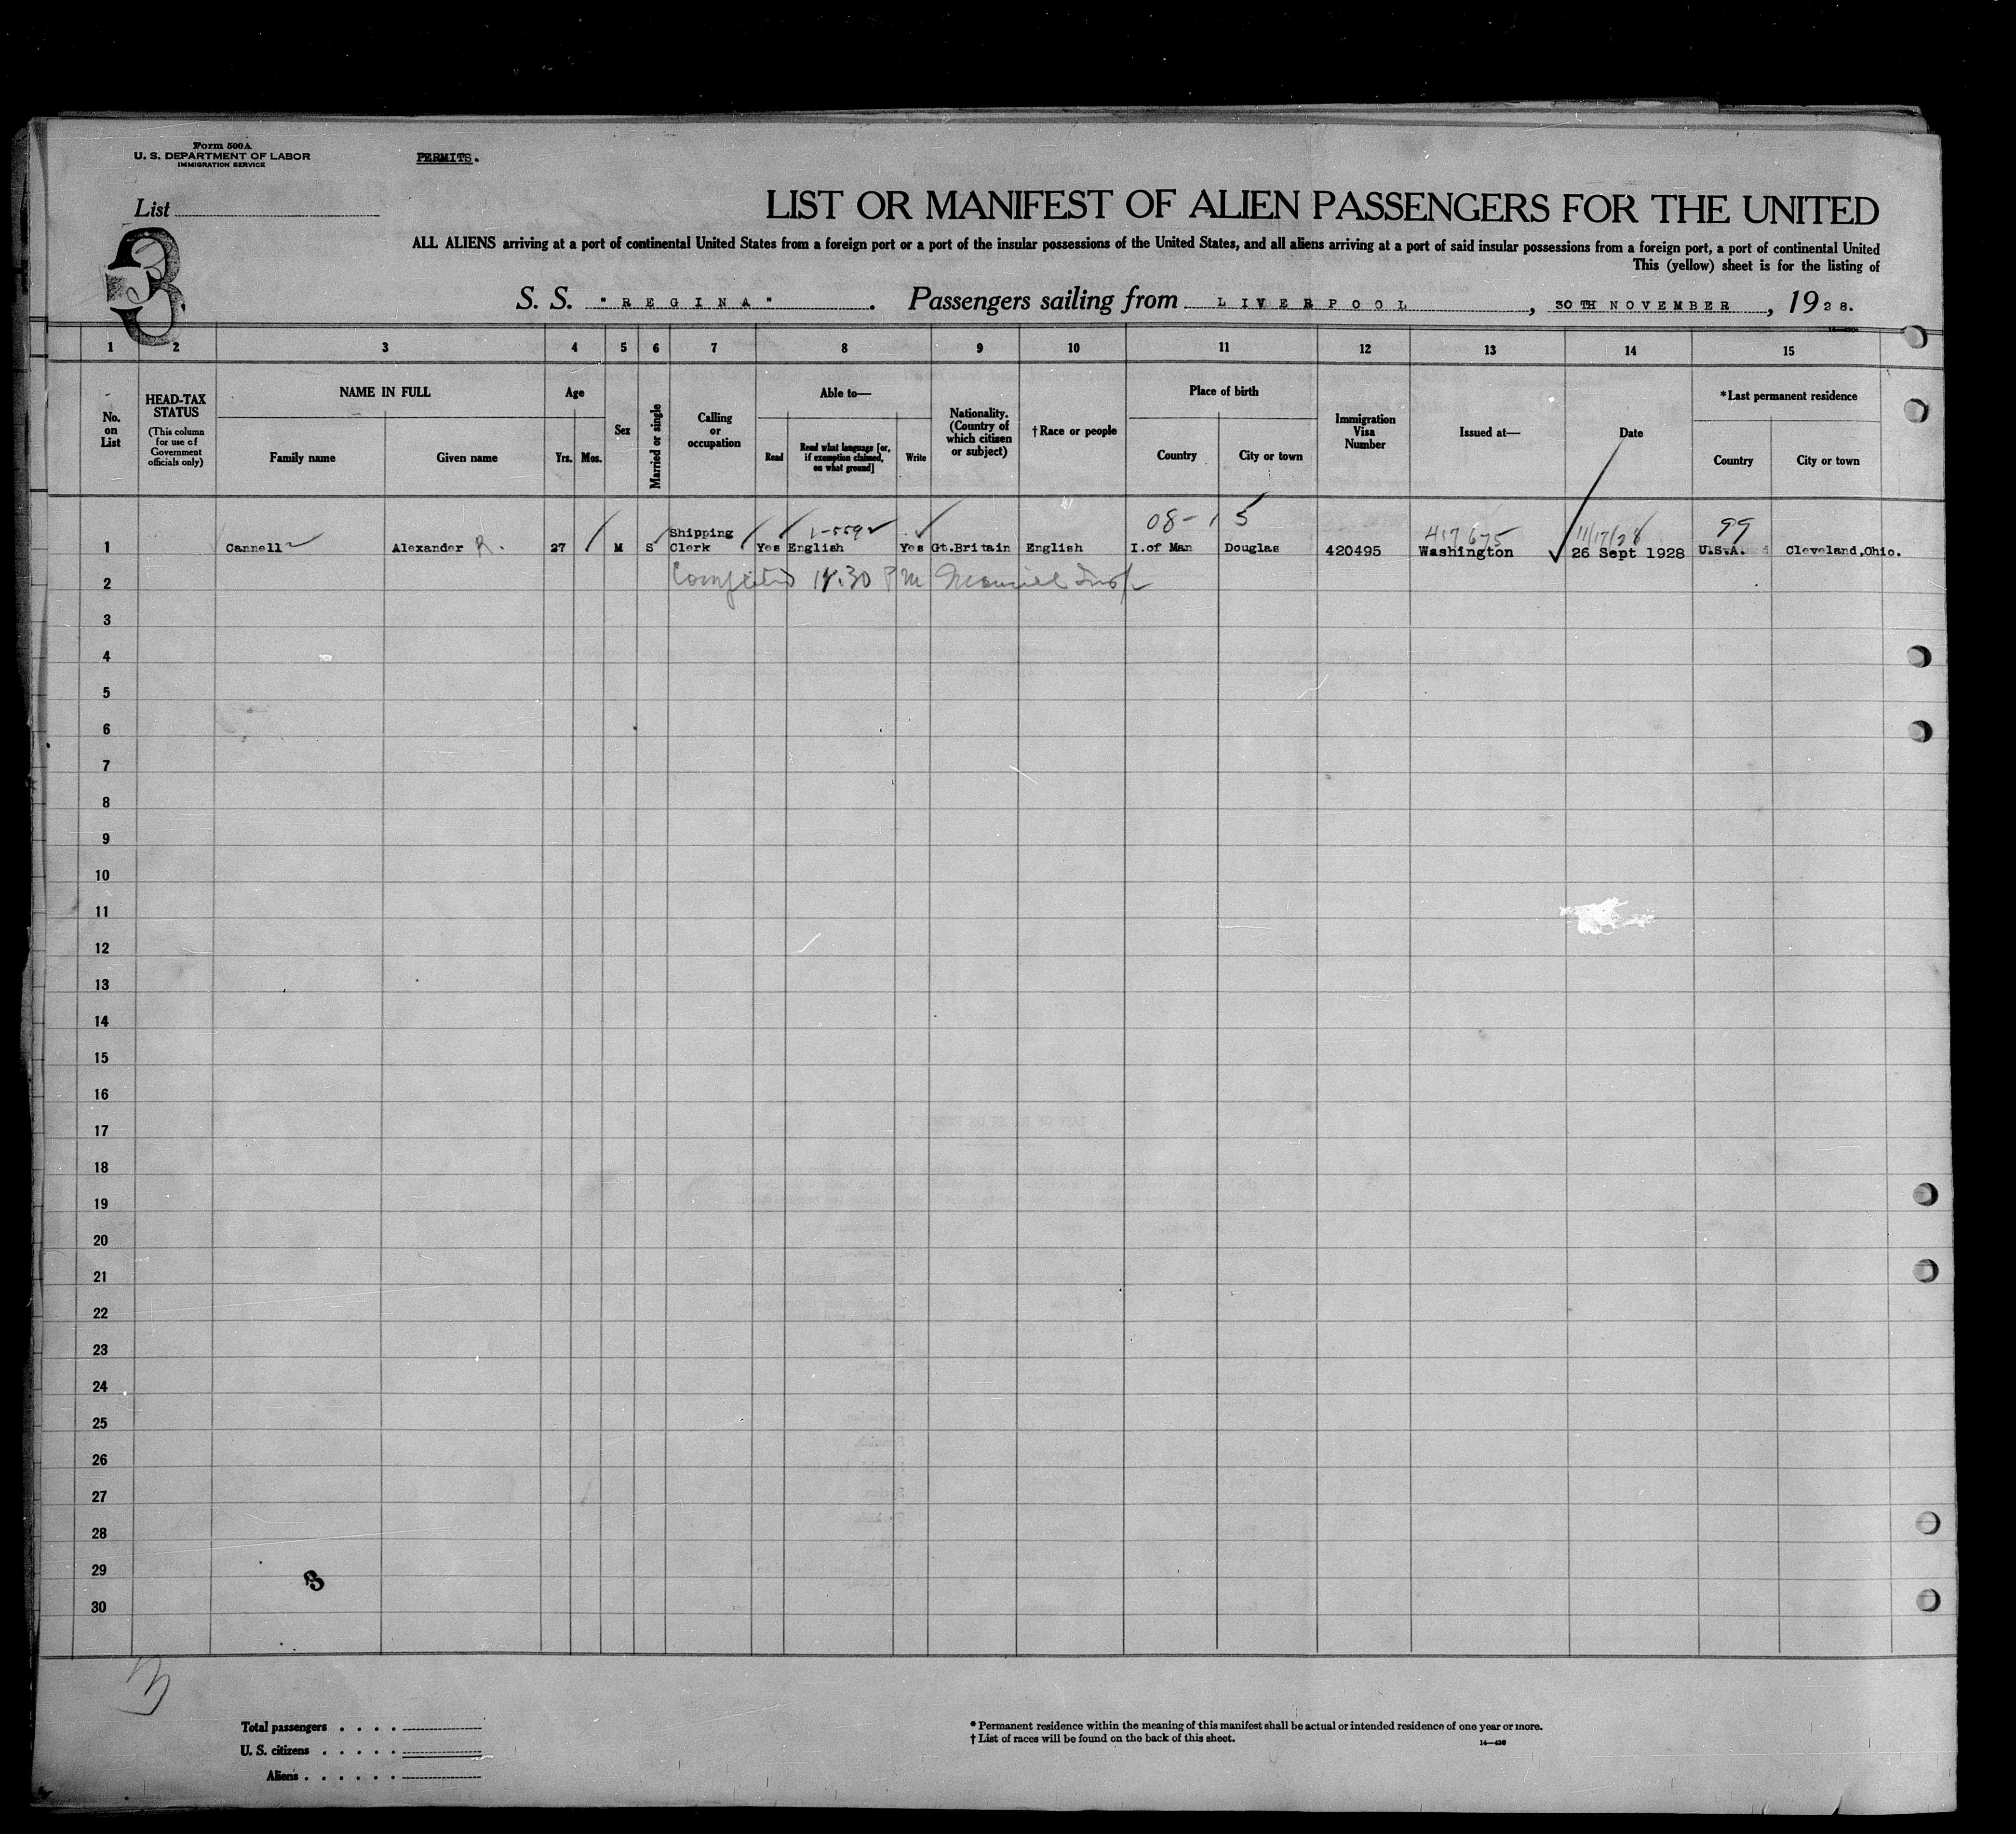 Form 500A
U. S. DEPARTMENT OF LABOR
IMMIGRATION SERVICE
PERMITS.
List
3
LIST OR MANIFEST OF ALIEN PASSENGERS FOR THE UNITED
ALL ALIENS arriving at a port of continental United States from a foreign port or a port of the insular possessions of the United States, and all aliens arriving at a port of said insular possessions from a foreign port, a port of continental United
This (yellow) sheet is for the listing of
S. S. "REGINA". Passengers sailing from LIVERPOOL, 30TH NOVEMBER, 1928.
1 2 3 4 5 6 7 8 9 10 11 12 13 14 15
No. on List
HEAD-TAX STATUS
(This column for use of Government officials only)
NAME IN FULL
Family name Given name
Age
Yrs. Mos.
Sex
Married or single
Calling or occupation
Able to—
Read
Read what language [or, if exemption claimed, on what ground]
Write
Nationality. (Country of which citizen or subject)
†Race or people
Place of birth
Country City or town
Immigration Visa Number
Issued at—
Date
*Last permanent residence
Country City or town
08-15
417675 11/17/28 99
1 Cannell Alexander R. 27 M S Shipping Clerk Yes English Yes Gt.Britain English I.of Man Douglas 420495 Washington 26 Sept 1928 U.S.A. Cleveland,Ohio.
2
3
4
5
6
7
8
9
10
11
12
13
14
15
16
17
18
19
20
21
22
23
24
25
26
27
28
29
30
3
3
Total passengers . . . .
U. S. citizens . . . . .
Aliens . . . . . .
* Permanent residence within the meaning of this manifest shall be actual or intended residence of one year or more.
† List of races will be found on the back of this sheet.